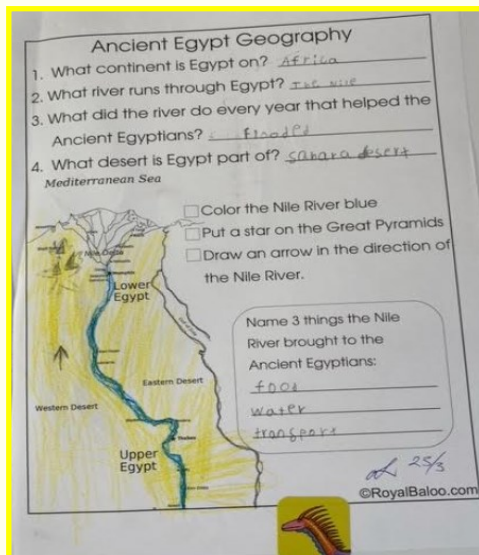 Ancient Egypt Geography
1. What continent is Egypt on? Africa
2. What river runs through Egypt? The Nile
3. What did the river do every year that helped the
Ancient Egyptians? flooded
4. What desert is Egypt part of? sahara desert
Mediterranean Sea
Color the Nile River blue
Put a star on the Great Pyramids
Draw an arrow in the direction of
the Nile River.
Nile Delta
Lower
Egypt
Name 3 things the Nile
River brought to the
Ancient Egyptians:
food
water
transport
Eastern Desert
Western Desert
Thebes
Upper
Egypt
25/3
©RoyalBaloo.com